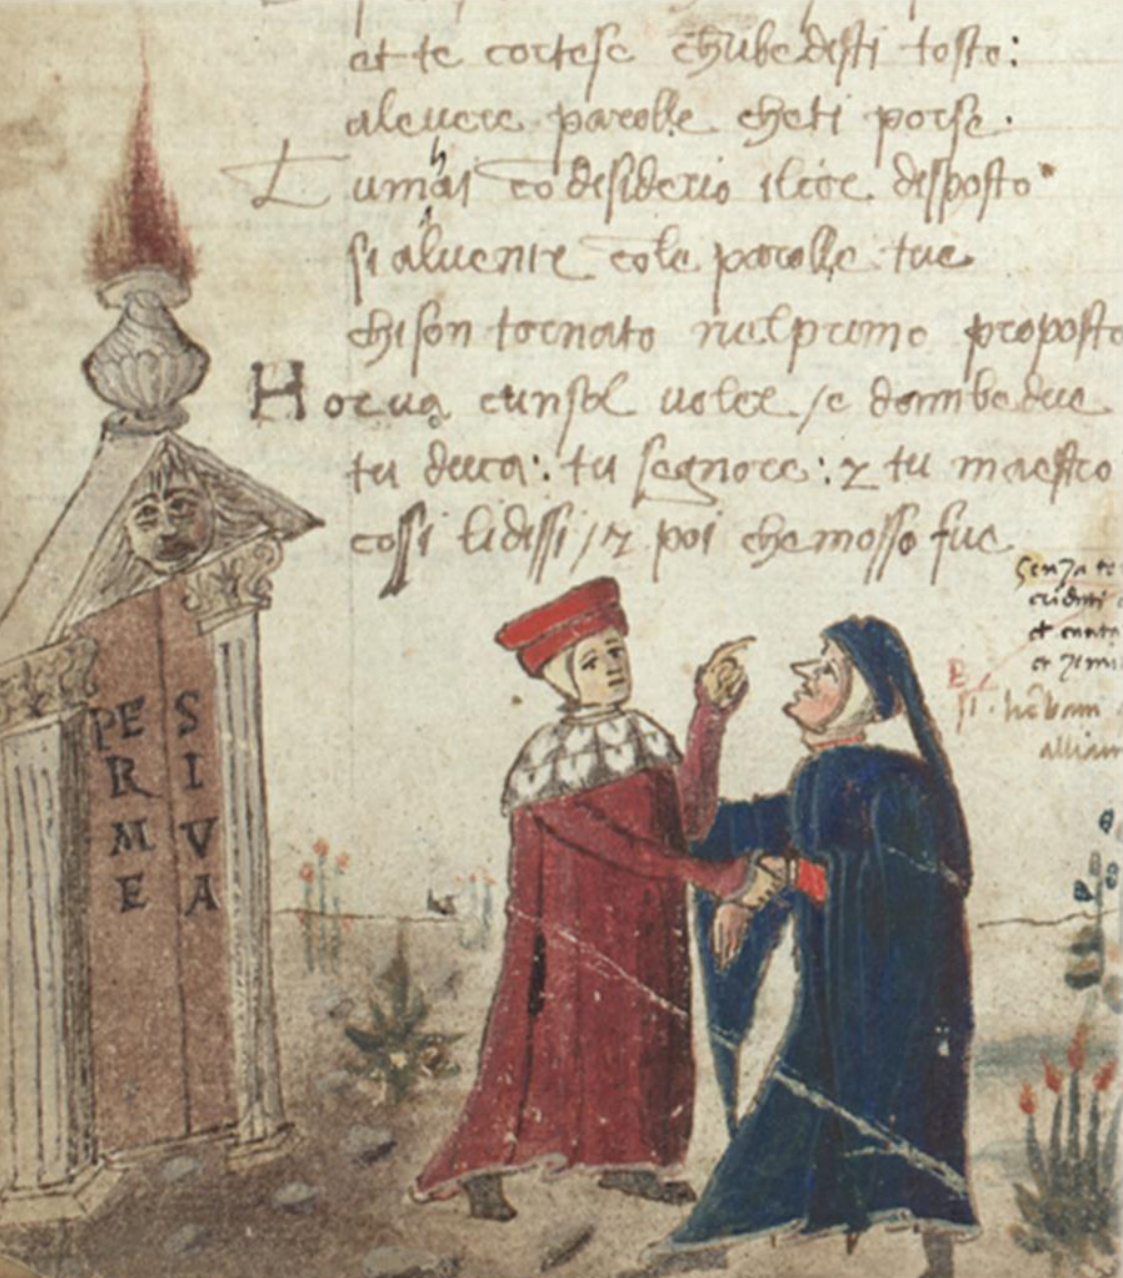 et te cortese chubedisti tosto:
aleuere parolle cheti porse.
Tu mhai co desiderio ilcore dissposto
si aluenire cole parolle tue
chison tornato nelprimo proposto
Hor ua chunsol uoler / e dambedue
tu duca: tu segnore: 7 tu maestro
cossi lidissi / 7 poi chemosso fue
Senza te
et
hebam
PE S
R I
M V
E A